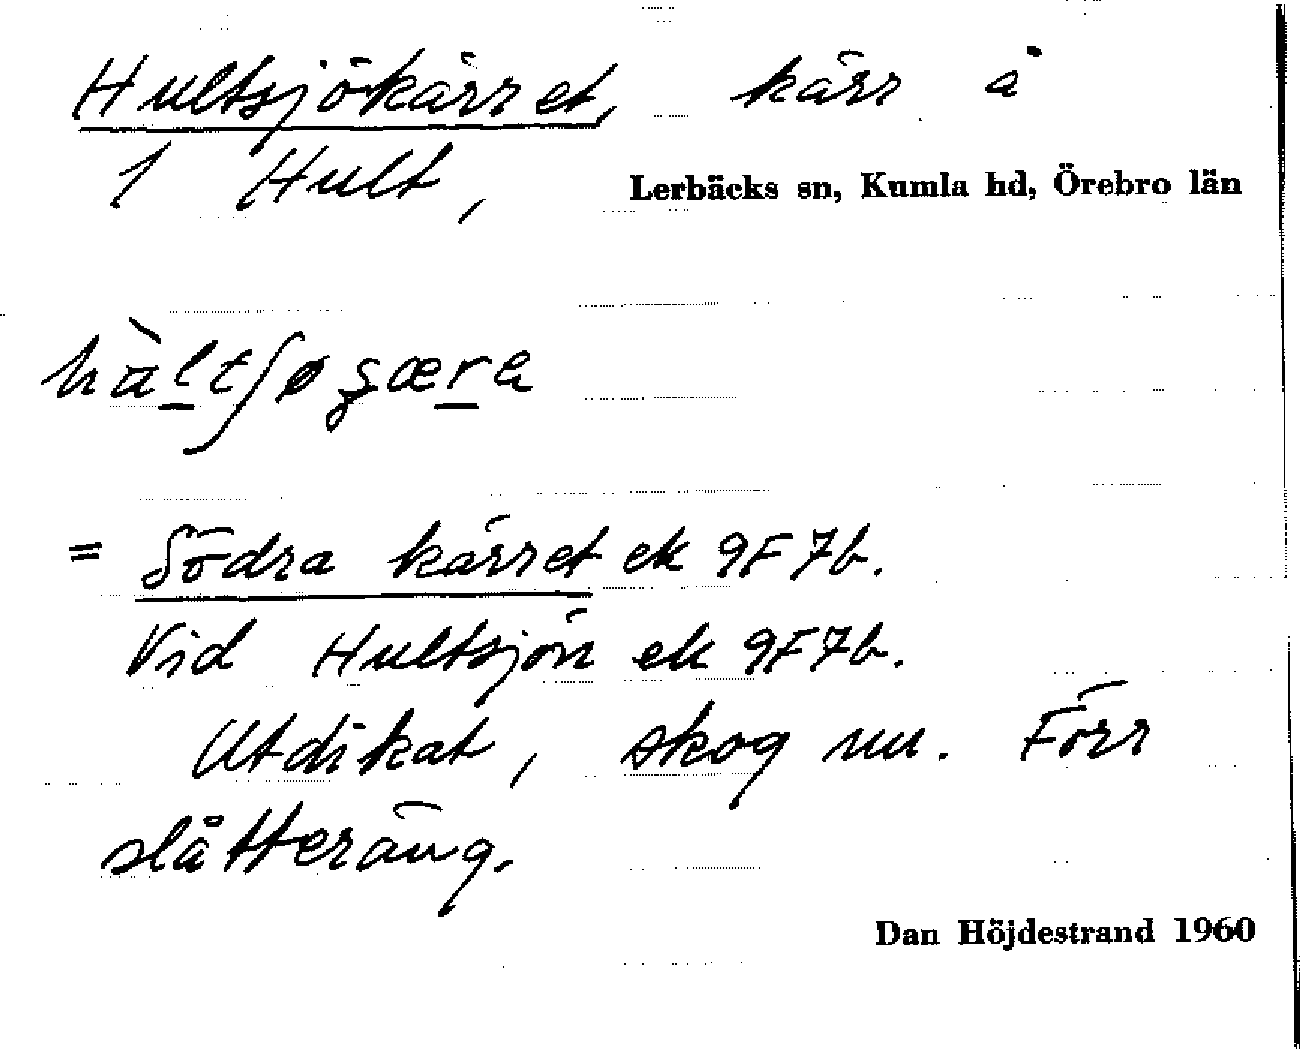 Hultsjökärret, kärr å
1 Hult, Lerbäcks sn, Kumla hd, Örebro län
= Södra kärret ek 9F7b.
Vid Hultsjön ek 9F7b.
Utdikat, skog nu. Förr
slåtteräng.
Dan Höjdestrand 1960